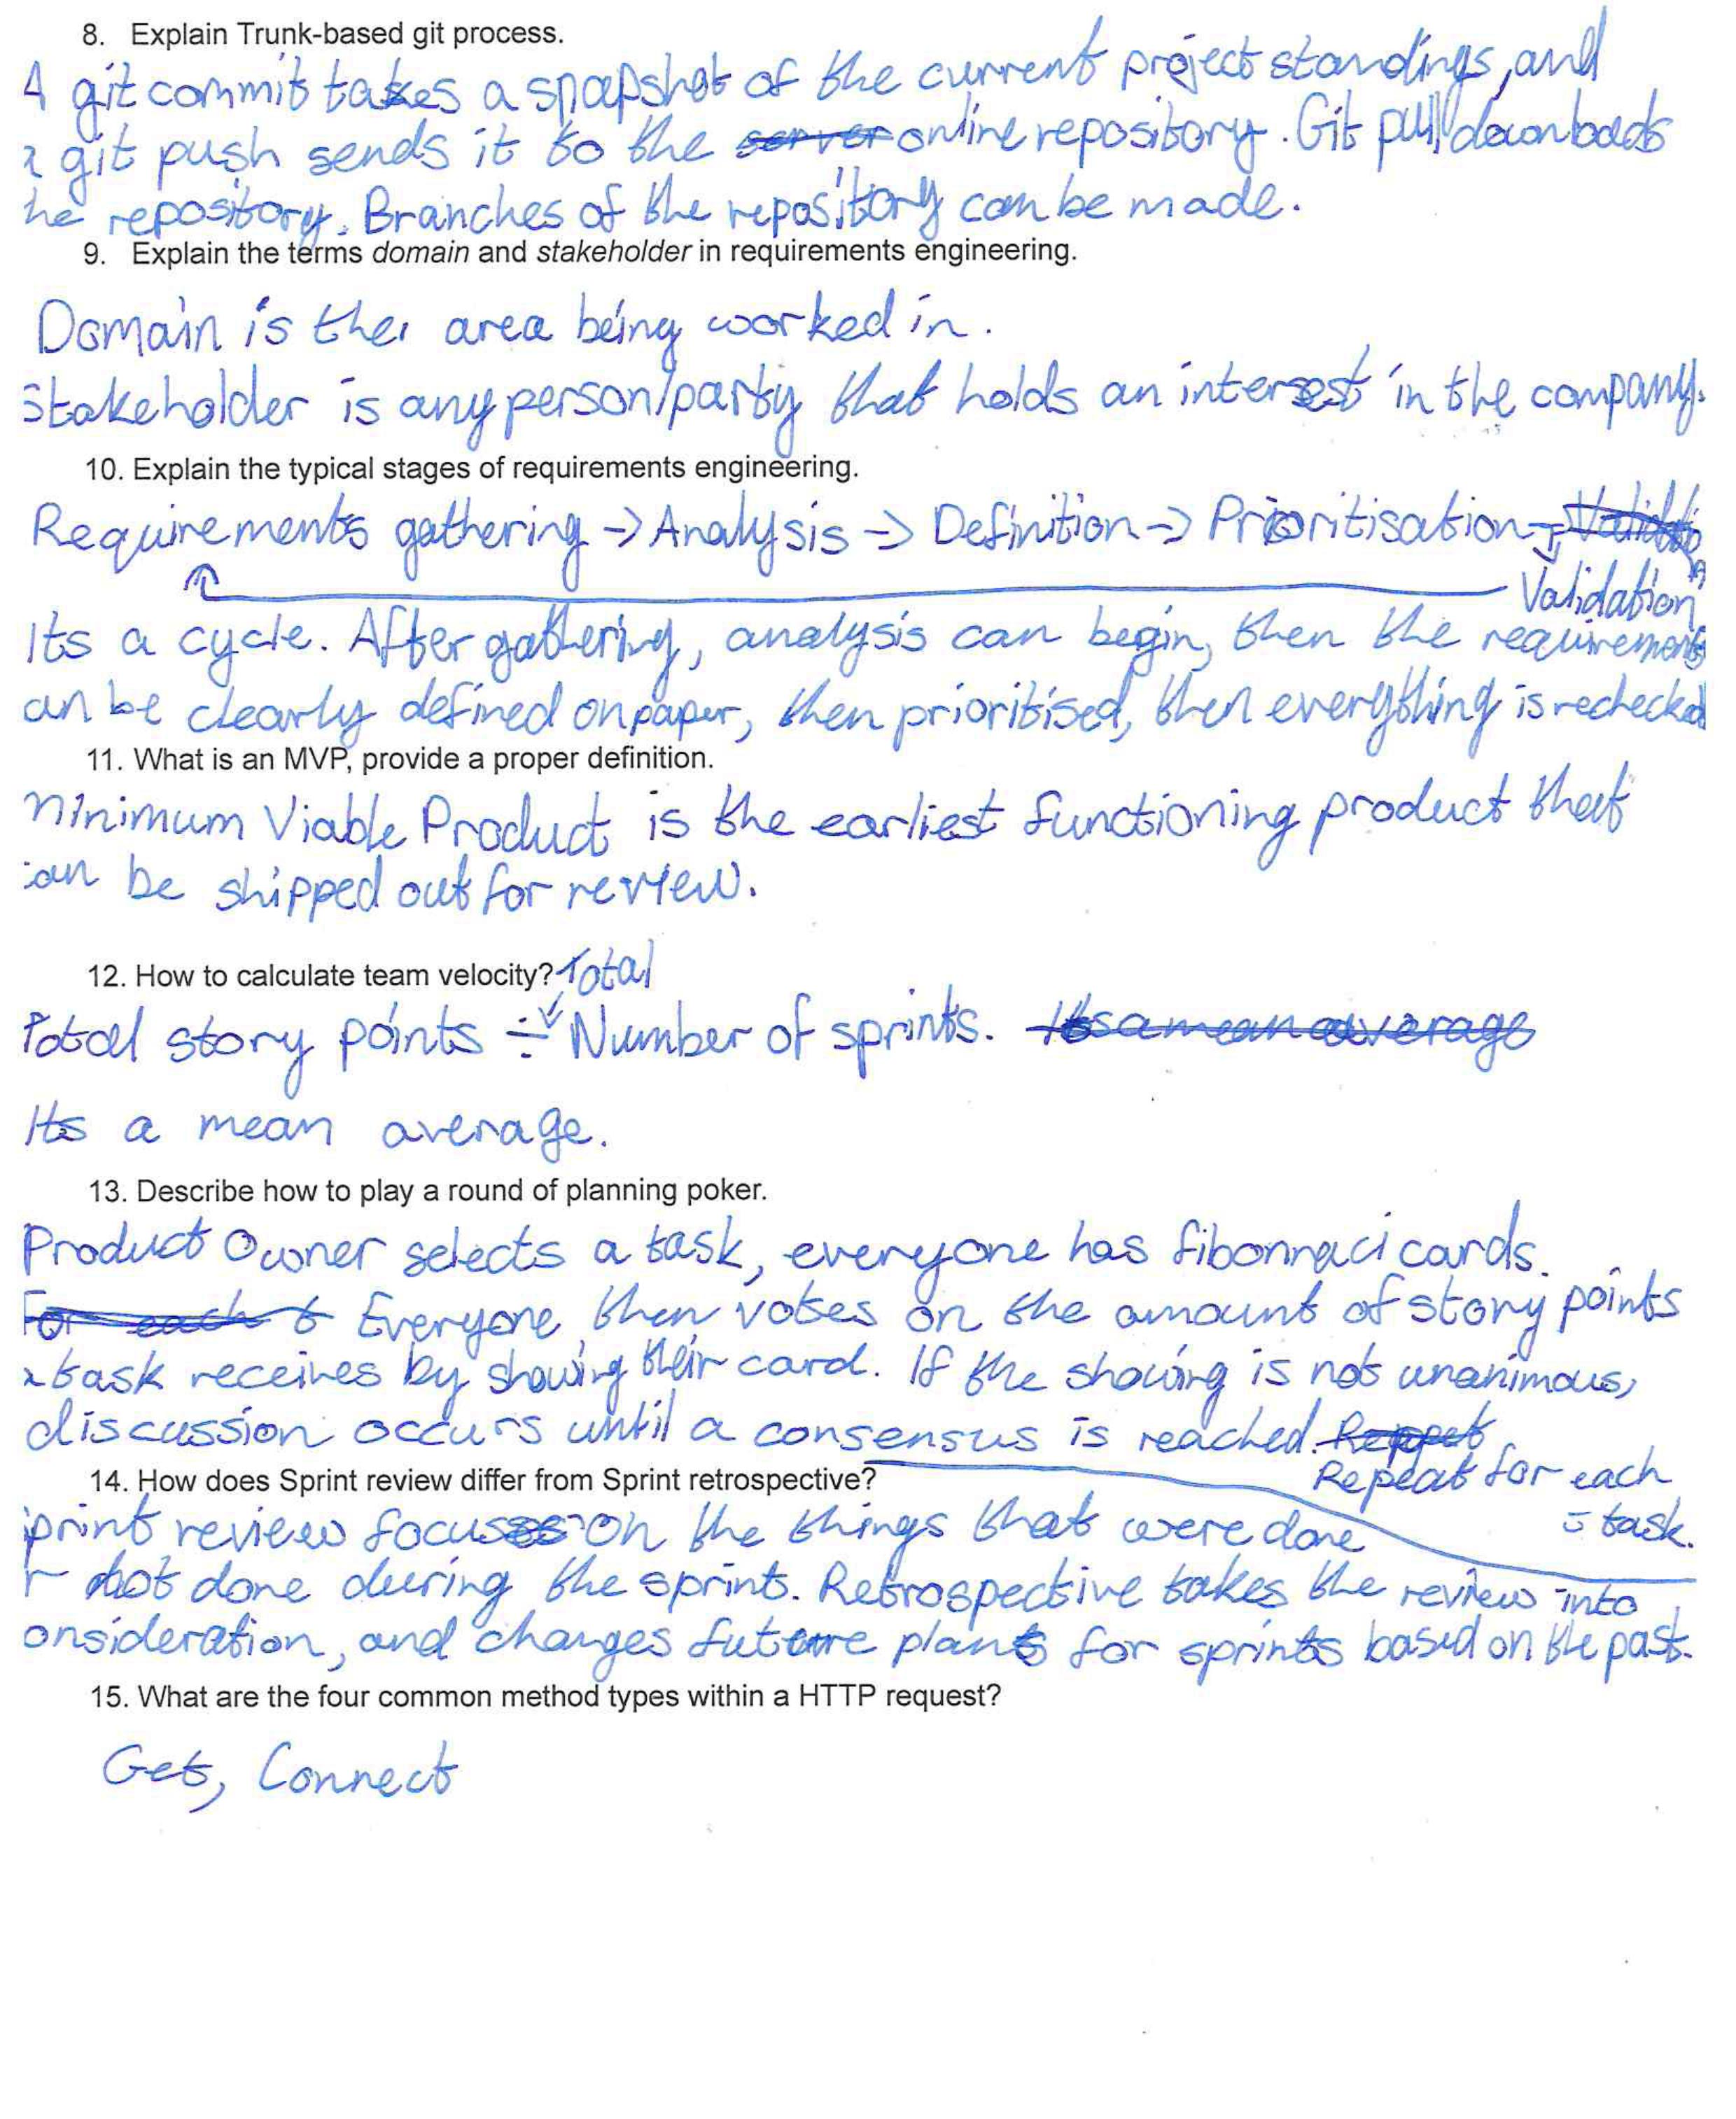 8. Explain Trunk-based git process.
A git commit takes a snapshot of the current project standings, and
a git push sends it to the server online repository. Git pull downloads
he repository. Branches of the repository can be made.
9. Explain the terms domain and stakeholder in requirements engineering.
Domain is the area being worked in.
Stakeholder is any person/party that holds an interest in the company.
10. Explain the typical stages of requirements engineering.
Requirements gathering -> Analysis -> Definition -> Prioritisation ->
Validation
Its a cycle. After gathering, analysis can begin, then the requirements
an be clearly defined on paper, then prioritised, then everything is rechecked
11. What is an MVP, provide a proper definition.
Minimum Viable Product is the earliest functioning product that
can be shipped out for review.
12. How to calculate team velocity? Total
Total story points ÷ Number of sprints. Its a mean average
Its a mean average.
13. Describe how to play a round of planning poker.
Product Owner selects a task, everyone has fibonnaci cards.
For each t Everyone then votes on the amount of story points
a task receives by showing their card. If the showing is not unanimous,
discussion occurs until a consensus is reached. Reppet
Repeat for each
task.
14. How does Sprint review differ from Sprint retrospective?
print review focuses on the things that were done
r not done during the sprint. Retrospective takes the review into
onsideration, and changes future plans for sprints based on the past.
15. What are the four common method types within a HTTP request?
Get, Connect